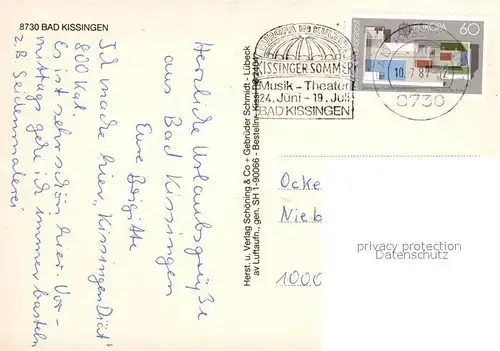 8730 BAD KISSINGEN
Ich mache hier "Kissingen Diät"
800 Kal.
Es ist sehr schön hier. Vor-
mittags gehe ich immer basteln
z.B. Seidenmalerei
Herzliche Urlaubsgrüße
aus Bad Kissingen
Eure Brigitte
Herst. u. Verlag Schöning & Co + Gebrüder Schmidt - Lübeck
av Luftaufn., gen. SH 1-90066 - Bestellnr.
KISSINGER SOMMER
Musik - Theater
24. Juni - 19. Juli
BAD KISSINGEN
EUROPA
60
10. 7. 8
8730
Ocke
Nieb
1000
privacy protection
Datenschutz